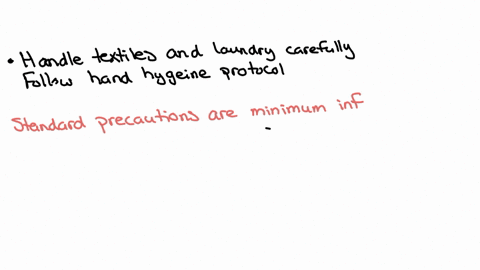 • Handle textiles and laundry carefully
Follow hand hygeine protocol
Standard precautions are minimum inf